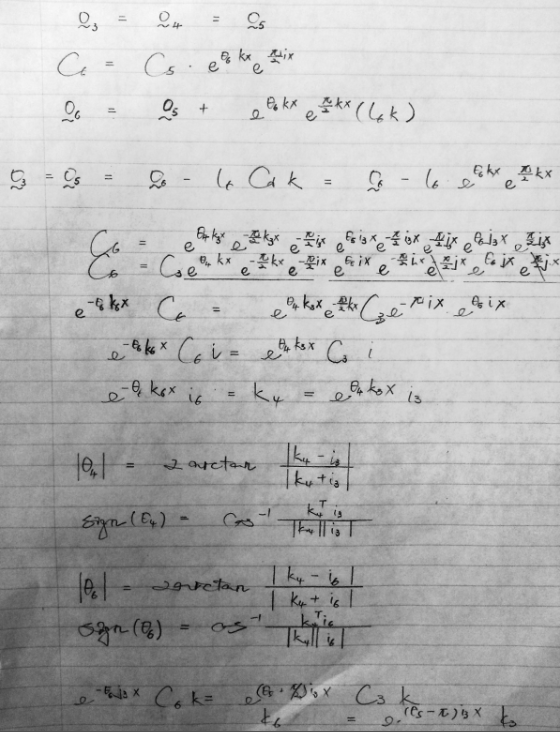 O₃ = O₄ = O₅
C₆ = C₅ · e^{θ₆ kx} e^{π/2 ix}
O₆ = O₅ + e^{θ₆ kx} e^{π/2 kx} (l₆ k)
O₃ = O₅ = O₆ - l₆ C₆ k = O₆ - l₆ e^{θ₆ kx} e^{π/2 kx}
C₆ = e^{θ₄ k₃x} e^{-π/2 k₃x} e^{-π/2 i₃x} e^{θ₅ i₃x} e^{-π/2 i₃x} e^{-π/2 j₃x} e^{θ₆ j₃x} e^{π/2 j₃x}
C₆ = C₃ e^{θ₄ kx} e^{-π/2 kx} e^{-π/2 ix} e^{θ₅ ix} e^{-π/2 ix} e^{-π/2 jx} e^{θ₆ jx} e^{π/2 jx}
e^{-θ₆ k₆x} C₆ = e^{θ₄ k₃x} e^{-π/2 kx} C₃ e^{-π ix} e^{θ₅ ix}
e^{-θ₆ k₆x} C₆ i = e^{θ₄ k₃x} C₃ i
e^{-θ₆ k₆x} i₆ = k₄ = e^{θ₄ k₃x} i₃
|θ₄| = 2 arctan |k₄ - i₃| / |k₄ + i₃|
sign(θ₄) = cos⁻¹ k₄ᵀ i₃ / |k₄||i₃|
|θ₆| = 2 arctan |k₄ - i₆| / |k₄ + i₆|
sign(θ₆) = cos⁻¹ k₄ᵀ i₆ / |k₄||i₆|
C₆ k = C₃ k
k₆ = e^{(θ₅ - π) i₃x} k₃